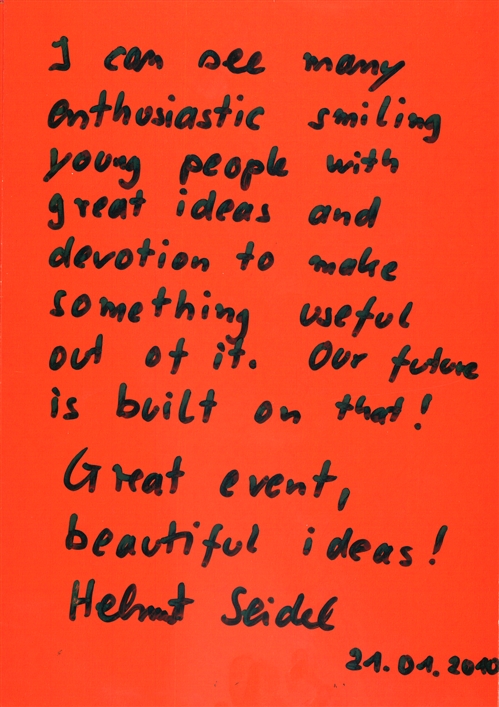 I can see many
enthusiastic smiling
young people with
great ideas and
devotion to make
something useful
out of it. Our future
is built on that!
Great event,
beautiful ideas!
Helmut Seidel
21.01.2010